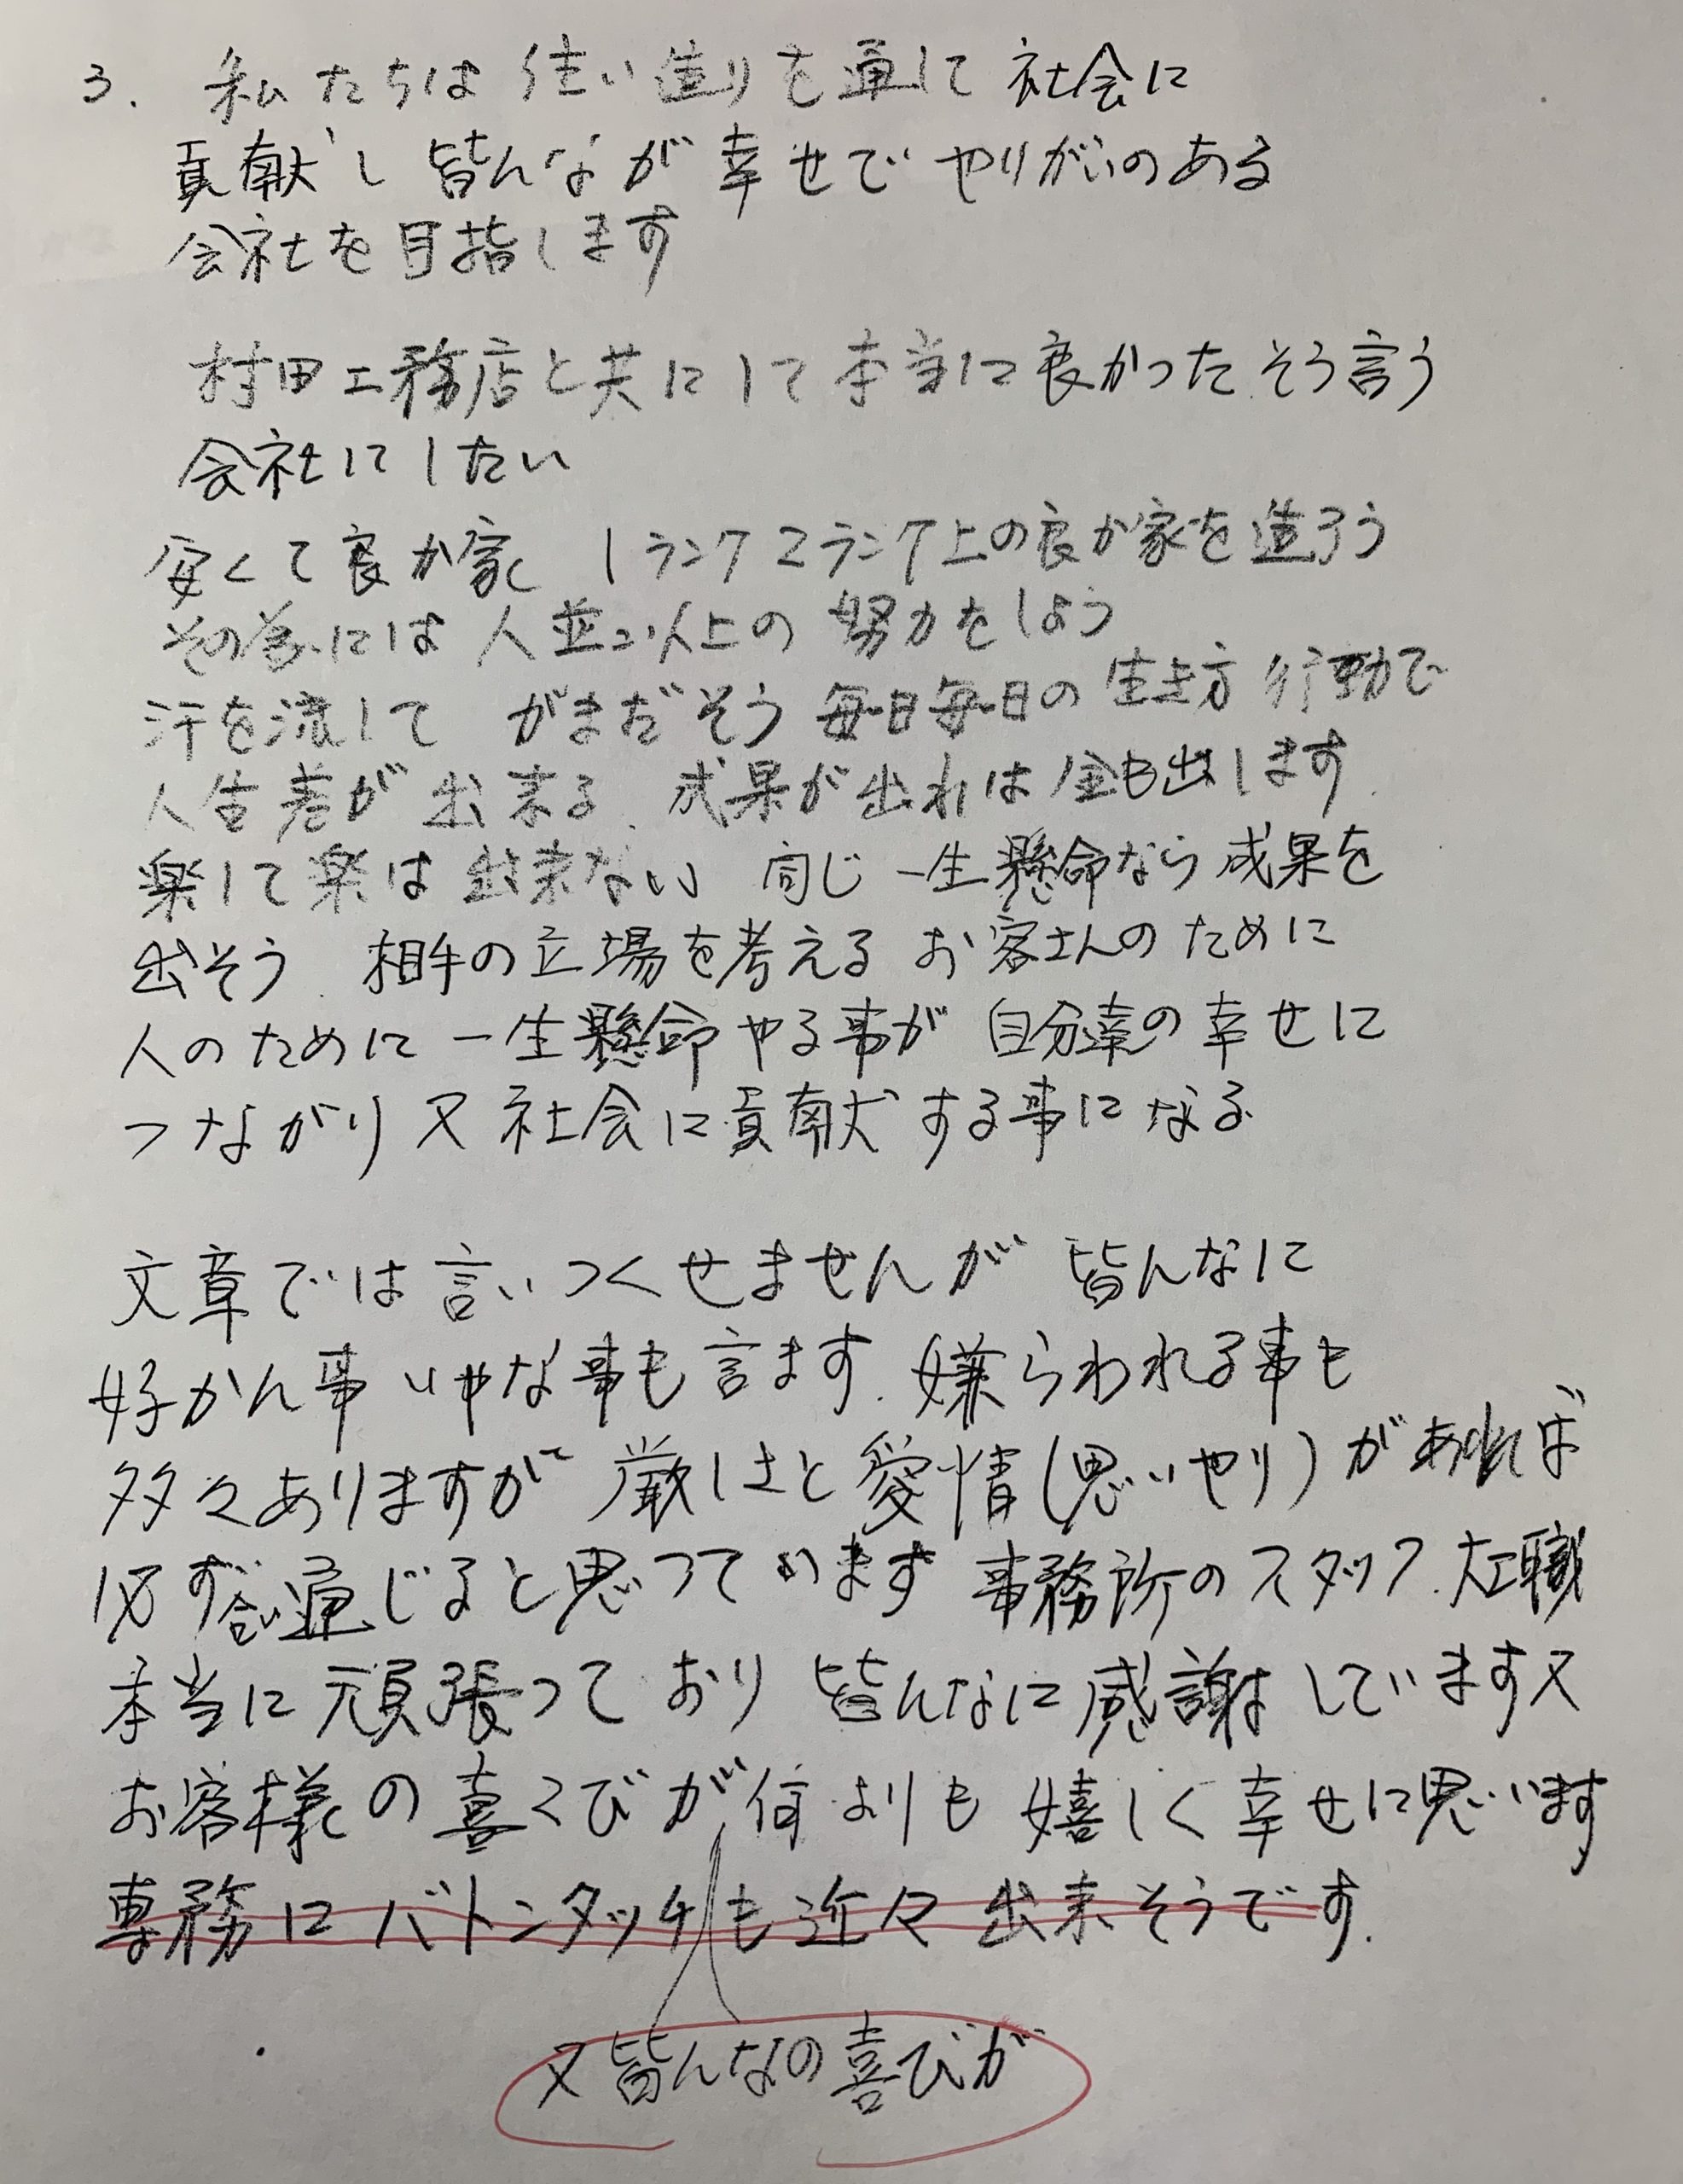 3. 私たちは住い造りを通して社会に
貢献し皆んなが幸せでやりがいのある
会社を目指します
村田工務店と共にして本当に良かった.そう言う
会社にしたい
安くて良か家 1ランク2ランク上の良か家を造ろう
その為には人並以上の努力をしよう
汗を流して がまだそう 毎日毎日の生き方 行動で
人生差が出来る. 成果が出れば金も出します.
楽して楽は出来ない 同じ一生懸命なら成果を
出そう. 相手の立場を考える お客さんのために
人のために一生懸命やる事が自分達の幸せに
つながり又社会に貢献する事になる
文章では言いつくせませんが 皆んなに
好かん事 いやな事も言ます. 嫌らわれる事も
多々ありますが 厳しさと愛情(思いやり)があれば
必ず通じ合いると思っています 事務所のスタッフ.大工職
本当に頑張っており 皆んなに感謝しています又
お客様の喜くびが何よりも嬉しく幸せに思います
専務にバトンタッチも近々出来そうです.
又皆んなの喜びが